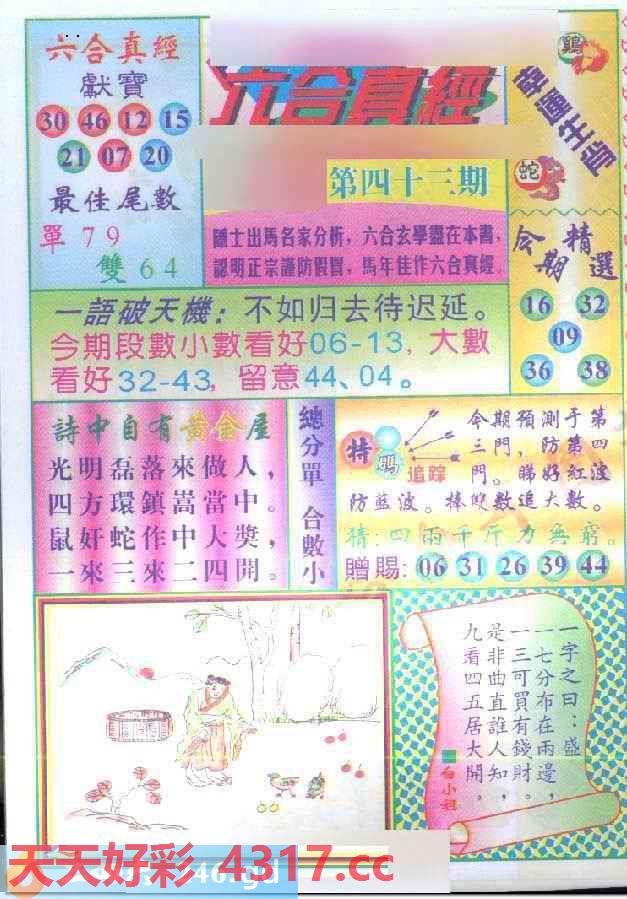 六合真經
獻寶
30 46 12 15
21 07 20
最佳尾數
單79
雙64
六合真經
第四十三期
隱士出馬名家分析，六合玄學盡在本書，
認明正宗謹防假冒，馬年佳作六合真經。
鷄
蛇
今期精選
16 32
09
36 38
一語破天機：不如归去待迟延。
今期段數小數看好06-13，大數
看好32-43，留意44、04。
詩中自有黃金屋
光明磊落來做人，
四方環鎮嵩當中。
鼠奸蛇作中大獎，
一來三來二四開。
總分單 合數小
特碼
追踪
今期預測于第
三門，防第四
門。睇好紅波
防藍波。捧雙數追大數。
猜：四兩千斤力無窮。
贈賜：06 31 26 39 44
一字之曰：盛
一七分布在兩邊，
一三可買有錢財。
是非曲直誰人知，
九看四五居大開。
白小姐
天天好彩 4317.cc